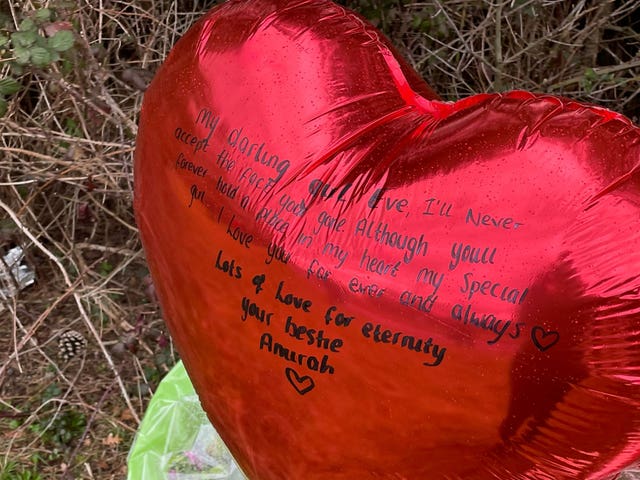 My darling girl Eve, I'll Never
accept the fact your gone. Although you'll
forever hold a place in my heart my special
girl. I love you for ever and always ♡
Lots of love for eternity
your bestie
Anurah
♡